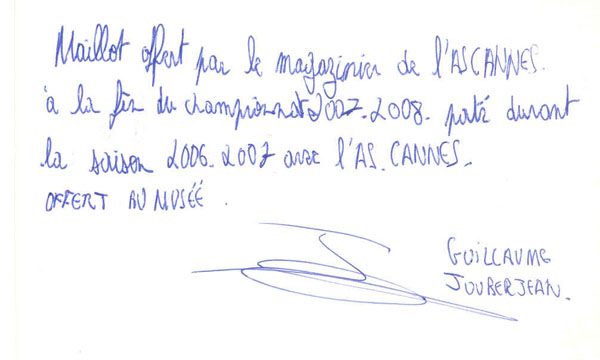 Maillot offert par le magazinier de l'AS CANNES.
à la fin du championnat 2007-2008. porté durant
la saison 2006-2007 avec l'AS. CANNES.
OFFERT AU MUSÉÉ.
GUILLAUME
JOUBERJEAN.